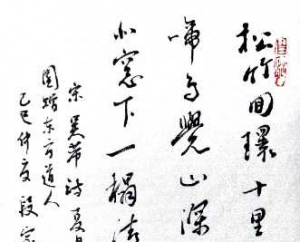 松竹回環十里
啼鳥覺山深
小窓下一榻清
宋吴希詩夏日
圆
东方道人
己巳仲夏段